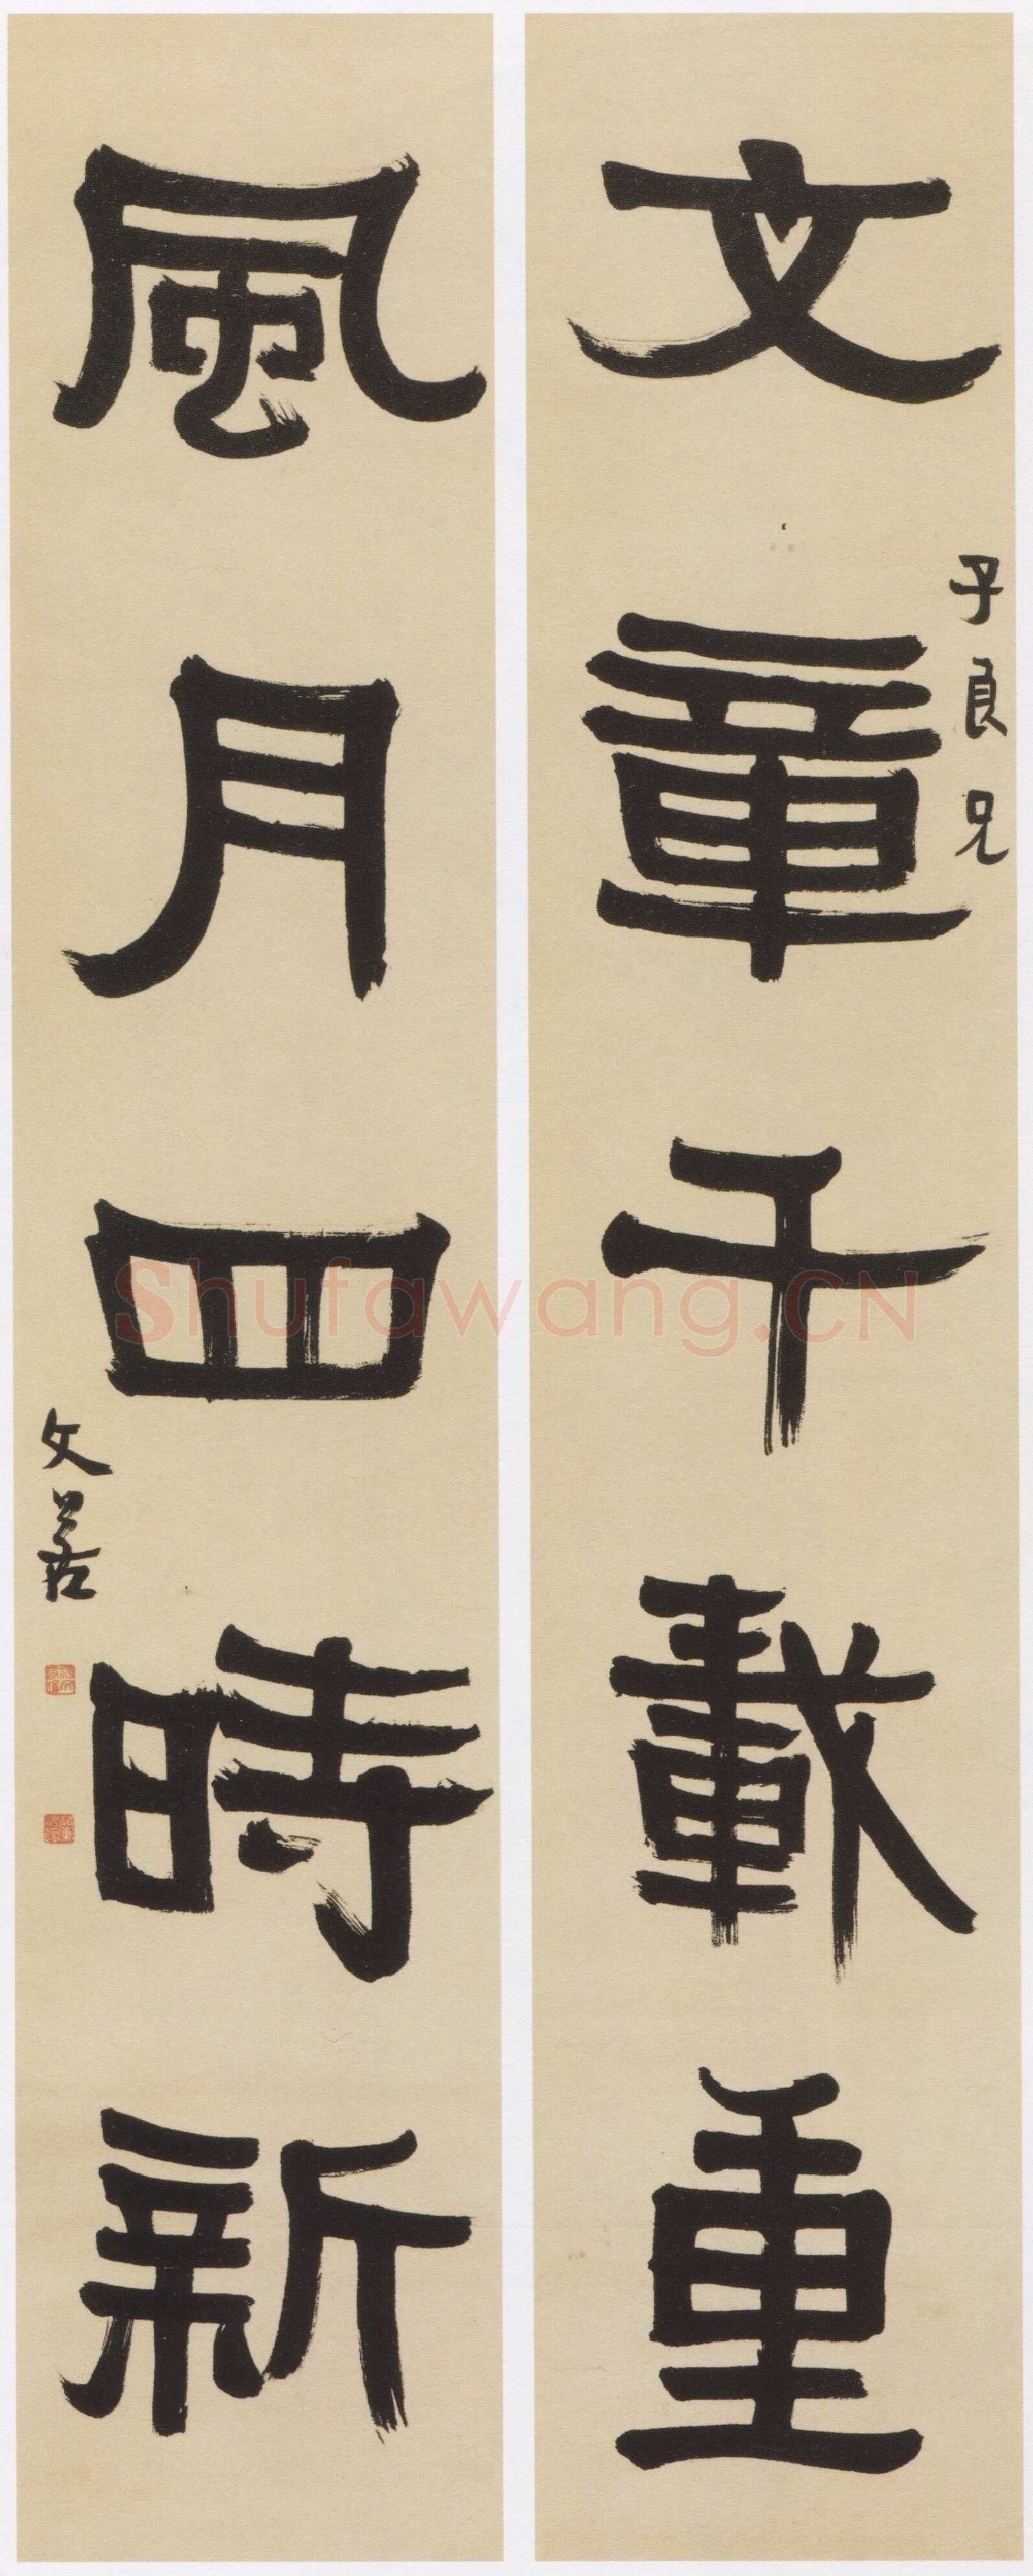 文章千載重
子良兄
風月四時新
Shufawang.CN